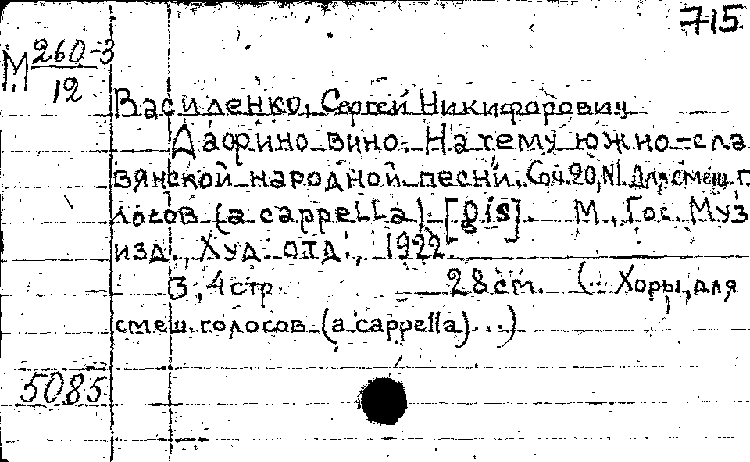 715
М 260-3
12
Василенко, Сергей Никифорович
Дафино вино. На тему южно-сла
вянской народной песни. Соч. 20, N1. Для смеш. г.
лосов (a cappella). [gis]. М., Гос. Муз
изд., Худ. отд., 1922.
3, 4 стр. 28 см. (Хоры для
смеш. голосов (a cappella)...)
5085